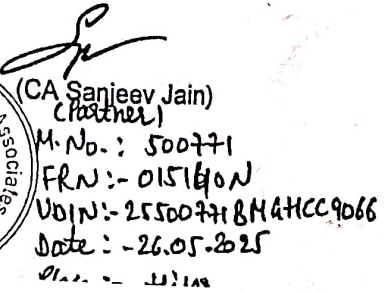 (CA Sanjeev Jain)
(Partner)
M. No. : 500771
FRN :- 015140N
UDIN :- 25500771BMGHCC9066
Date : - 26.05.2025
ssociates